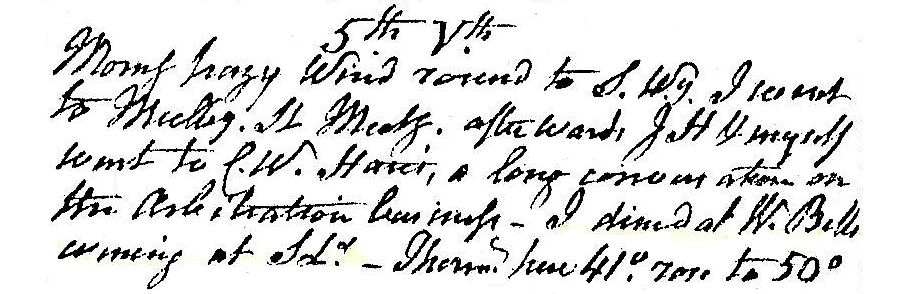 5th Vth
Morng hazy Wind round to S.W.g. I went
to Meetg. St Meetg. afterwards J H & myself
went to C.W. Hares, a long conversation on
the Arbitration business – I dined at W. Bells
evening at SLd. – Thermr. here 41°. rose to 50°